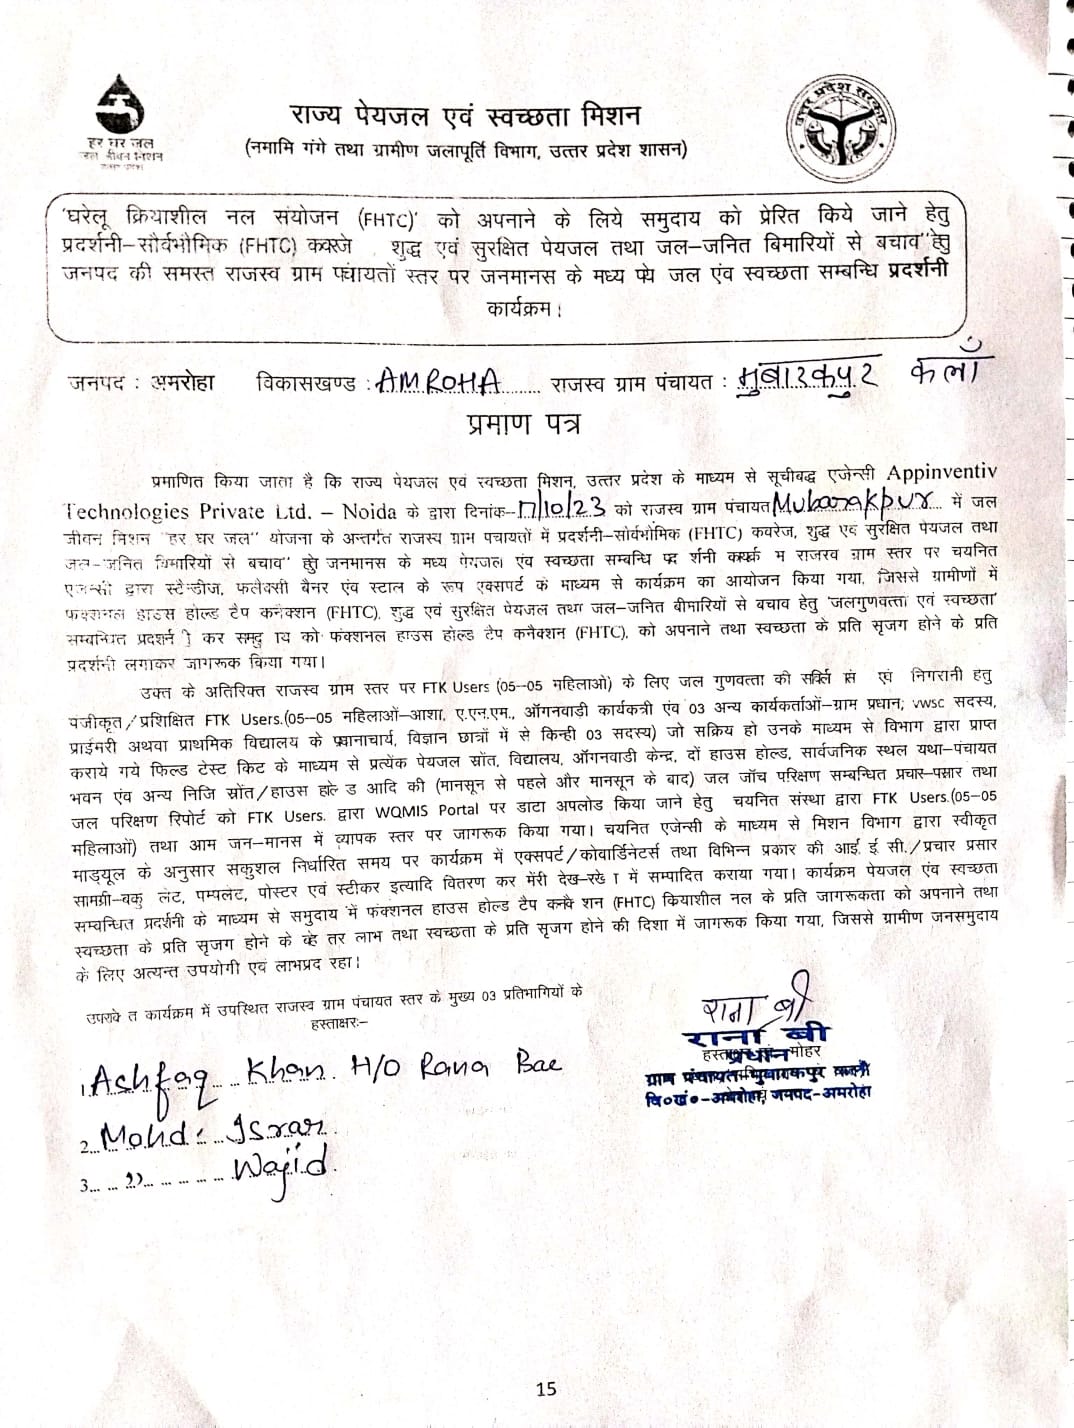 हर घर जल
जल जीवन मिशन
उत्तर प्रदेश सरकार
राज्य पेयजल एवं स्वच्छता मिशन
(नमामि गंगे तथा ग्रामीण जलापूर्ति विभाग, उत्तर प्रदेश शासन)
'घरेलू क्रियाशील नल संयोजन (FHTC)' को अपनाने के लिये समुदाय को प्रेरित किये जाने हेतु
प्रदर्शनी–सौर्वभौमिक (FHTC) शुद्ध एवं सुरक्षित पेयजल तथा जल–जनित बिमारियों से बचाव"हेतु
जनपद की समस्त राजस्व ग्राम पंचायतों स्तर पर जनमानस के मध्य जल एंव स्वच्छता सम्बन्धि प्रदर्शनी
कार्यक्रम।
जनपद : अमरोहा विकासखण्ड : AMROHA राजस्व ग्राम पंचायत : मुबारकपुर कलाँ
प्रमाण पत्र
प्रमाणित किया जाता है कि राज्य पेयजल एवं स्वच्छता मिशन, उत्तर प्रदेश के माध्यम से सूचीबद्ध एजेन्सी Appinventiv
Technologies Private Ltd. – Noida के द्वारा दिनांक–17/10/23 को राजस्व ग्राम पंचायत Mubarakpur में जल
जीवन मिशन "हर घर जल" योजना के अन्तर्गत राजस्व ग्राम पंचायतों में प्रदर्शनी–सोर्वभौमिक (FHTC) कवरेज, शुद्ध एवं सुरक्षित पेयजल तथा
जल–जनित बिमारियों से बचाव" हेतु जनमानस के मध्य पेयजल एंव स्वच्छता सम्बन्धि राजस्व ग्राम स्तर पर चयनित
एजेन्सी द्वारा स्टैन्डीज, फलैक्सी बैनर एंव स्टाल के रूप एक्सपर्ट के माध्यम से कार्यक्रम का आयोजन किया गया, जिससे ग्रामीणों में
फंक्शनल हाउस होल्ड टैप कनैक्शन (FHTC), शुद्ध एवं सुरक्षित पेयजल तथा जल–जनित बीमारियों से बचाव हेतु 'जलगुणवत्ता एवं स्वच्छता'
सम्बन्धित कर को फंक्शनल हाउस होल्ड टैप कनैक्शन (FHTC), को अपनाने तथा स्वच्छता के प्रति सृजग होने के प्रति
प्रदर्शनी लगाकर जागरूक किया गया।
उक्त के अतिरिक्त राजस्व ग्राम स्तर पर FTK Users (05–05 महिलाओ) के लिए जल गुणवत्ता की एवं निगरानी हेतु
पंजीकृत/प्रशिक्षित FTK Users.(05–05 महिलाओं–आशा, ए.एन.एम., ऑगनवाडी कार्यकत्री एंव 03 अन्य कार्यकर्ताओं–ग्राम प्रधान; vwsc सदस्य,
प्राईमरी अथवा प्राथमिक विद्यालय के प्रधानाचार्य, विज्ञान छात्रों में से किन्ही 03 सदस्य) जो सक्रिय हो उनके माध्यम से विभाग द्वारा प्राप्त
कराये गये फिल्ड टेस्ट किट के माध्यम से प्रत्येक पेयजल स्रोंत, विद्यालय, ऑगनवाडी केन्द्र, दों हाउस होल्ड, सार्वजनिक स्थल यथा–पंचायत
भवन एंव अन्य निजि स्रोंत/हाउस होल्ड आदि की (मानसून से पहले और मानसून के बाद) जल जॉच परिक्षण सम्बन्धित प्रचार–प्रसार तथा
जल परिक्षण रिपोर्ट को FTK Users. द्वारा WQMIS Portal पर डाटा अपलोड किया जाने हेतु चयनित संस्था द्वारा FTK Users.(05–05
महिलाओं) तथा आम जन–मानस में व्यापक स्तर पर जागरूक किया गया। चयनित एजेन्सी के माध्यम से मिशन विभाग द्वारा स्वीकृत
माड्यूल के अनुसार सकुशल निर्धारित समय पर कार्यक्रम में एक्सपर्ट/कोवार्डिनेटर्स तथा विभिन्न प्रकार की आई. ई. सी./प्रचार प्रसार
सामग्री–बुकलेट, पम्पलेट, पोस्टर एवं स्टीकर इत्यादि वितरण कर मेंरी देख–रेख में सम्पादित कराया गया। कार्यक्रम पेयजल एंव स्वच्छता
सम्बन्धित प्रदर्शनी के माध्यम से समुदाय में फंक्शनल हाउस होल्ड टैप (FHTC) कियाशील नल के प्रति जागरूकता को अपनाने तथा
स्वच्छता के प्रति सृजग होने के लाभ तथा स्वच्छता के प्रति सृजग होने की दिशा में जागरूक किया गया, जिससे ग्रामीण जनसमुदाय
के लिए अत्यन्त उपयोगी एवं लाभप्रद रहा।
कार्यक्रम में उपस्थित राजस्व ग्राम पंचायत स्तर के मुख्य 03 प्रतिभागियों के
हस्ताक्षरः–
राना बी
राना बी
प्रधान
हस्ताक्षर मोहर
ग्राम पंचायत–मुबारकपुर कलॉ
वि०खं०–अमरोहा, जनपद–अमरोहा
1. Ashfaq Khan H/O Rana Bae
2. Mohd: Israr
3. ,, Wajid
15